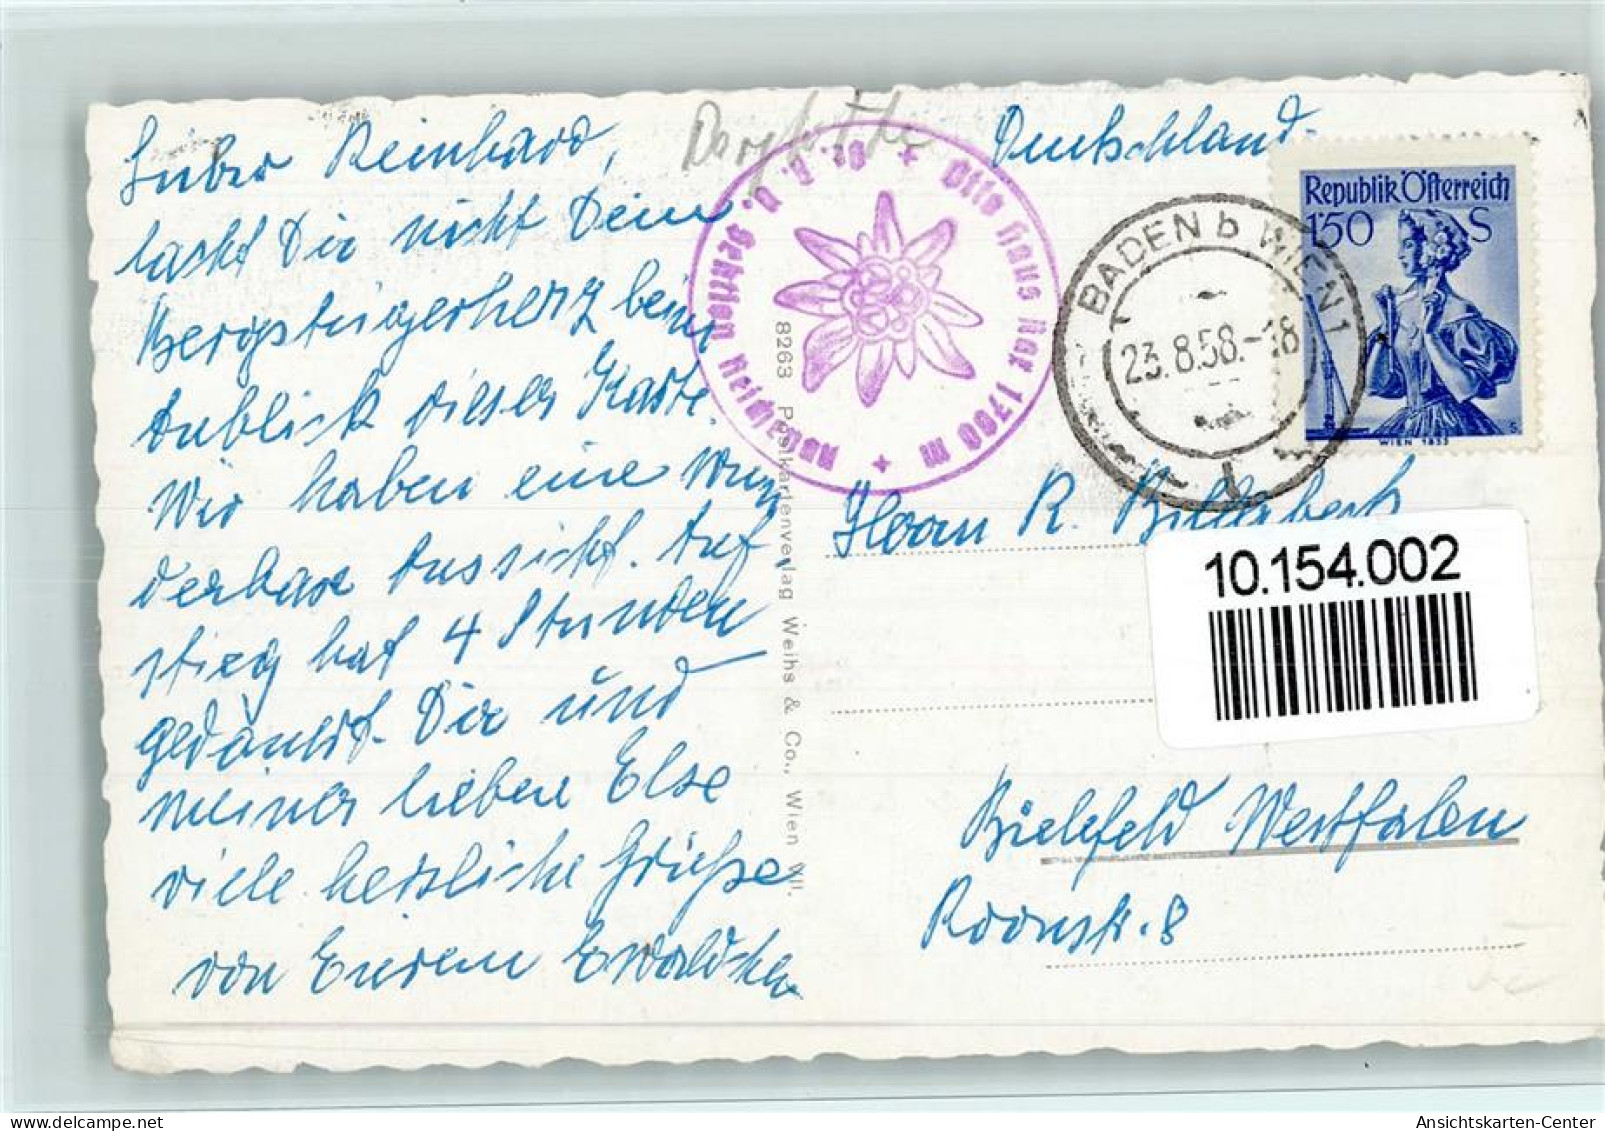 Lieber Reinhard,
lacht Dir nicht Dein
Bergsteigerherz beim
Anblick dieser Karte.
Wir haben eine wun
derbare Aussicht. Auf
stieg hat 4 Stunden
gedauert. Dir und
meiner lieben Else
viele herzliche Grüße
von Eurem Ewaldchen
8263 Postkartenverlag Weihs & Co., Wien VII.
Otto Haus Rax 1760 m
Sektion Reichenau
Deutschland.
BADEN b WIEN 1
23.8.58.-18
Republik Österreich
1'50 S
WIEN 1855
Herrn R. Billerbeck
10.154.002
Bielefeld Westfalen
Roonstr. 8
Ansichtskarten-Center